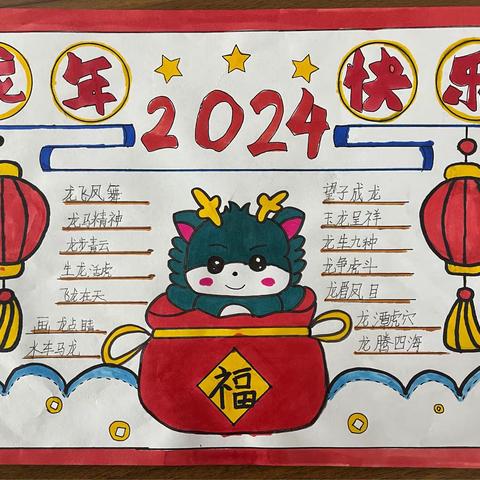 龙年 2024 快乐
龙飞凤舞
龙马精神
龙步青云
生龙活虎
飞龙在天
画龙点睛
水车马龙
望子成龙
玉龙呈祥
龙生九种
龙争虎斗
龙眉凤目
龙潭虎穴
龙腾四海
福